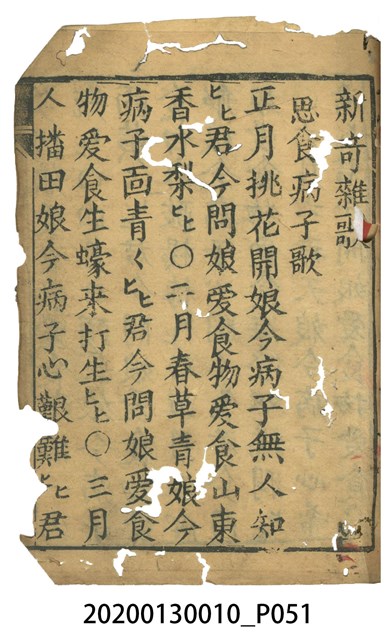 新奇雜歌
思食病子歌
正月挑花開娘今病子無人知
ヒヒ君今問娘愛食物愛食山東
香水梨ヒヒ〇二月春草青娘今
病子面青くヒヒ君今問娘愛食
物愛食生蠔來打生ヒヒ〇三月
人播田娘今病子心艱難ヒヒ君
20200130010_P051